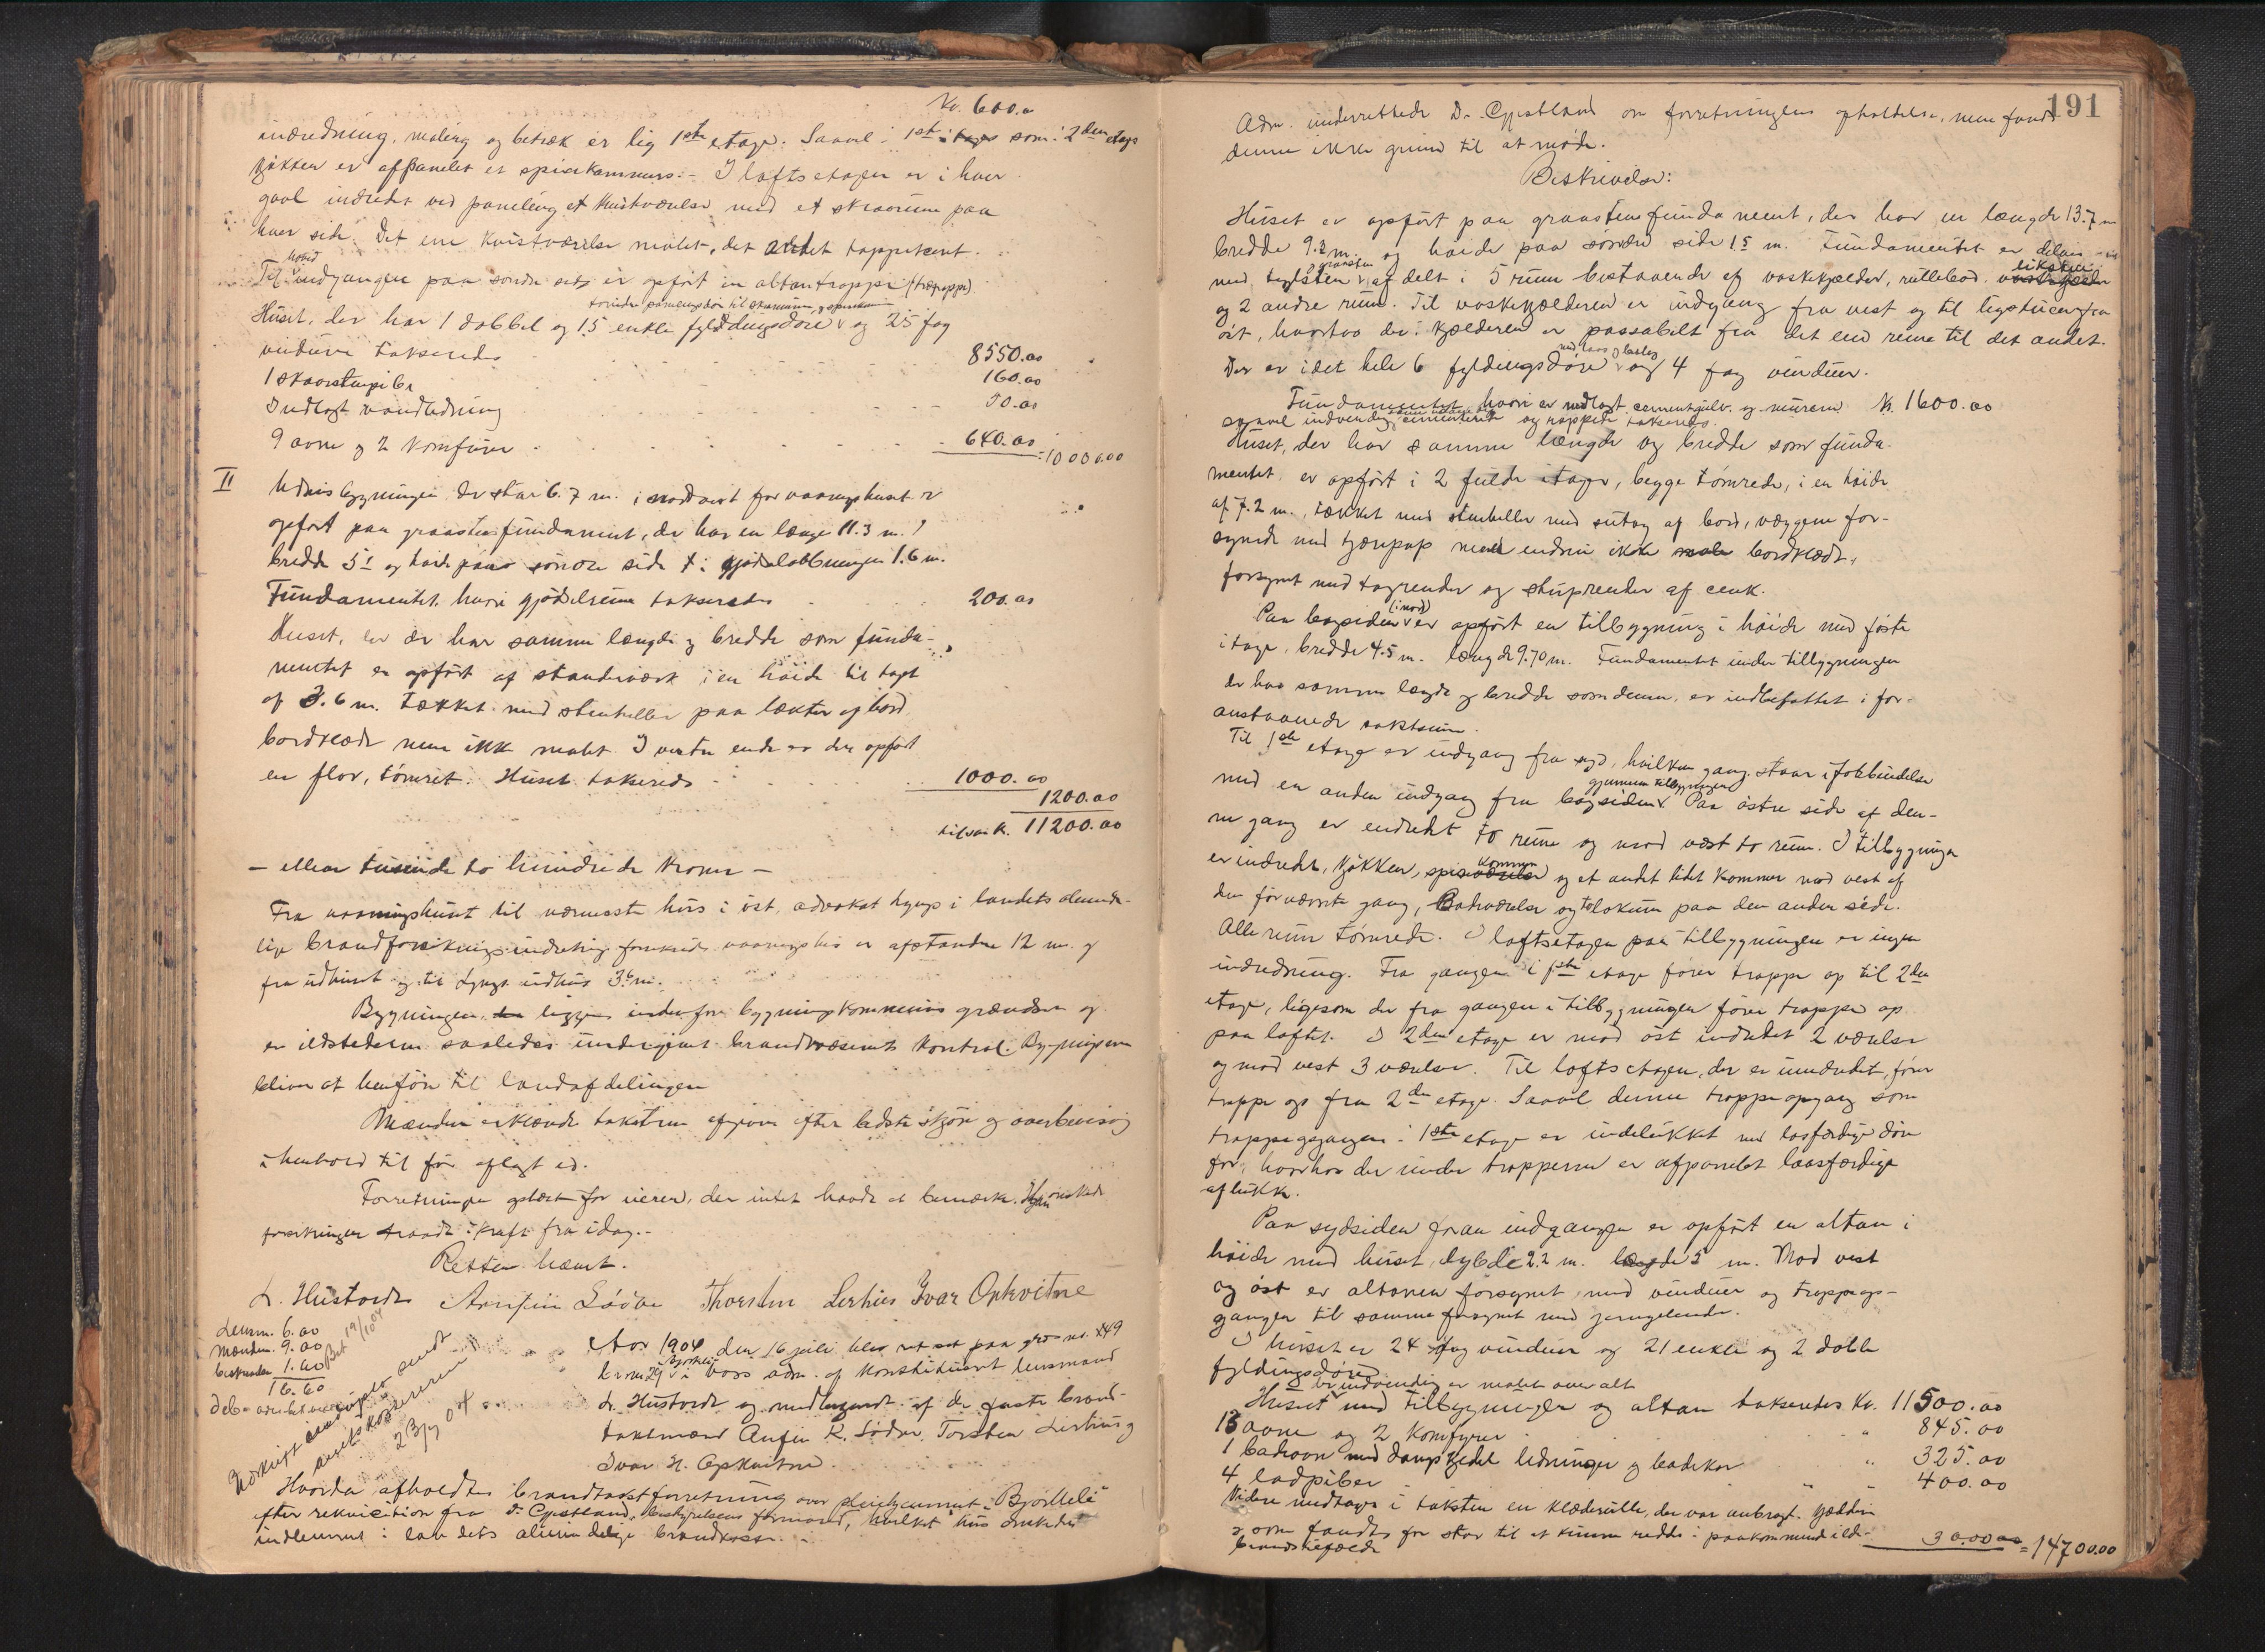 Kr. 600.00
indredning, maling og betræk er lig 1ste etage. Saavel i 1st etage som i 2den etage
kjøkken er afpanelet et spiskammers. - I loftsetagen er i hver
gavl indredet ved paneling et kvistværelse med et skraarum paa
hver side. Det ene kvistværelse malet, det andet tappetcert.
Til hovedindgangen paa søndre side er opført en altantrappe (trætrappe).
Huset, der har 1 dobbel og 15 enkle fyldingsdøre og 25 fag
vinduer takseredes 8550.00
1 skorstenspibe 160.00
Indlagt vandledning 50.00
9 ovne og 2 komfurer 640.00 = 10000.00
II Udhusbygningen der staar 6.7 m. i nordvest for vaaningshuset er
opført paa graastensfundament, der har en længde 11.3 m.
bredde 5.1 og høide paa søndre side i gjødselaabningen 1.6 m.
Fundamentet, hvori gjødselrum takseredes 200.00
Huset, der har samme længde og bredde som funda-
mentet er opført af standværk i en høide til taget
af 3.6 m. tækket med stenheller paa lækter og bord
bordklædt men ikke malet. I vestre ende er der opført
en flor, tømret. Huset takseredes 1000.00
1200.00
tilsam. K. 11200.00
- elleve tusinde to hundrede kroner -
Fra vaaningshuset til nærmeste hus i øst, advokat Lyngs i landets alminde-
lige brandforsikringsindretning forsikrede vaaningshus er afstanden 12 m. og
fra udhuset og til Lyngs udhus 3.6 m.
Bygningen ligger indenfor bygningskommunens grændser og
er ildstederne saaledes undergivet brandvæsenets kontrol. Bygningerne
bliver at henføre til landafdelingen
Mændene erklærede taksterne afgivne efter bedste skjøn og overbevisning
i henhold til før aflagt ed.
Forretningen oplæst for eieren, der intet havde at bemærke. Han ønskede
forsikringen traadt i kraft fra idag. -
Retten hævet.
L. Hustvedt Arnfin Løðve Thorsten Lirhus Ivar Opkvitne
Lensm. 6.00
Mændene 9.00
beskrivelsen 1.60
16.60
Bet 19/10 04
Aar 1904 den 16 juli blev ret sat paa grd no. 249
brno 29 Bjørkli i Voss adm. af konstitueret lensmand
L. Hustvedt og medtagendt af de faste brand-
takstmænd Anfin K. Løðve, Torsten Lirhus og
Ivar H. Opkvitne.
Hvorda afholdtes brandtakstforretning over pleiehjemmet "Bjørkeli"
efter rekvisition fra Dr. Gjestland, bestyrelsens formand, hvilket hus ønskedes
indlemmet i landets almindelige brandkasse. -
191
Adm. underrettede Dr. Gjestland om forretningens afholdelse, men fandt
denne ikke grund til at møde.
Beskrivelse:
Huset er opført paa graastensfundament, der har en længde 13.7 m
bredde 9.2 m. og høide paa søndre side 1.5 m. Fundamentet er delvis
med teglsten og graasten afdelt i 5 rum bestaaende af vaskekjælder, rullebod, likstue
og 2 andre rum. Til vaskekjælderen er indgang fra vest og til ligstuen fra
øst, hvorhos der i kjælderen er passabelt fra det ene rum til det andet.
Der er i det hele 6 fyldingsdøre med laas og beslag og 4 fag vinduer.
Fundamentet, hvori er nedlagt cementgulv og murene Kr. 1600.00
saavel indvendig som udvendig cementerede og rappede takseredes.
Huset, der har samme længde og bredde som funda-
mentet er opført i 2 fulde etager, begge tømrede, i en høide
af 7.2 m., tækket med stenheller med sutag af bord, væggene for-
synede med tjærepap men endnu ikke bordklædt,
forsynet med tagrender og stuprender af zink.
Paa bagsiden (i nord) er opført en tilbygning i høide med første
etage, bredde 4.5 m. længde 9.70 m. Fundamentet under tilbygningen
der har samme længde og bredde som denne, er indbefattet i for-
anstaaende takstsum.
Til 1ste etage er indgang fra syd, hvilken gang staar i forbindelse
med en anden indgang fra bagsiden gjennem tilbygningen. Paa østre side af den-
ne gang er indredet to rum og mod vest to rum. I tilbygningen
er indredet, kjøkken, spiskammer og et andet lidet kammer mod vest af
den førnævnte gang, badeværelse og to lokum paa den anden side.
Alle rum tømrede. I loftsetagen paa tilbygningen er ingen
indredning. Fra gangen i 1ste etage fører trappe op til 2den
etage, ligesom der fra gangen i tilbygningen fører trappe op
paa loftet. I 2den etage er mod øst indredet 2 værelser
og mod vest 3 værelser. Til loftsetagen, der er uindredet, fører
trappe op fra 2den etage. Saavel denne trappeopgang som
trappeopgangen i 1ste etage er indelukket med laasfærdige døre
for, hvorhos der under trapperne er afpanelet laasfærdige
aflukke.
Paa sydsiden foran indgangen er opført en altan i
høide med huset, dybde 2.2 m. længde 5 m. Mod vest
og øst er altanen forsynet med vinduer og trappeop-
gangen til samme forsynet med jerngelænder.
I huset er 24 fag vinduer og 21 enkle og 2 doble
fyldingsdøre
Huset der indvendig er malet over alt
med tilbygningen og altan takseredes Kr. 11500.00
13 ovne og 2 komfyrer " 845.00
1 badeovn med dampkjedel ledninger og badekar " 325.00
4 ladpiber " 400.00
Videre medtages i taksten en klæderulle, der var anbragt i kjælderen
og som fandtes for stor til at kunne reddes i paakommende ilde-
brandstilfælde 30.00 = 14700.00